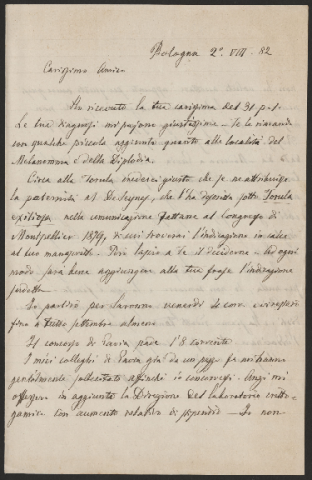 Bologna 2. VIII. 82
Carissimo Amico
Ho ricevuto la tua carissima del 31 p.p.
Le tue diagnosi mi pajono giustissime. Te le rimando
con qualche piccola aggiunta quanto alle località del
Melanomma e della Diplodia.
Circa alla Torula crederei giusto che se ne attribuisse
la paternità al De Seynes, che l'ha designata sotto Torula
nella comunicazione fattane al Congresso di
Montpellier 1879, di cui troverai l'indicazione in calce
al tuo manoscritto. Però lascio a te il decidere. Ad ogni
modo sarà bene aggiungere alla tua frase l'indicazione
suddetta.
Io partirò per Savona venerdì 4 corr. e vi resterò
fino a tutto settembre almeno.
Il concorso di Pavia scade l'8 corrente.
I miei colleghi di Pavia già da un pezzo mi hanno
gentilmente sollecitato affinchè io concorressi. Anzi mi
offersero in aggiunta la Direzione del laboratorio critto-
gamico con aumento relativo di stipendio. Io non